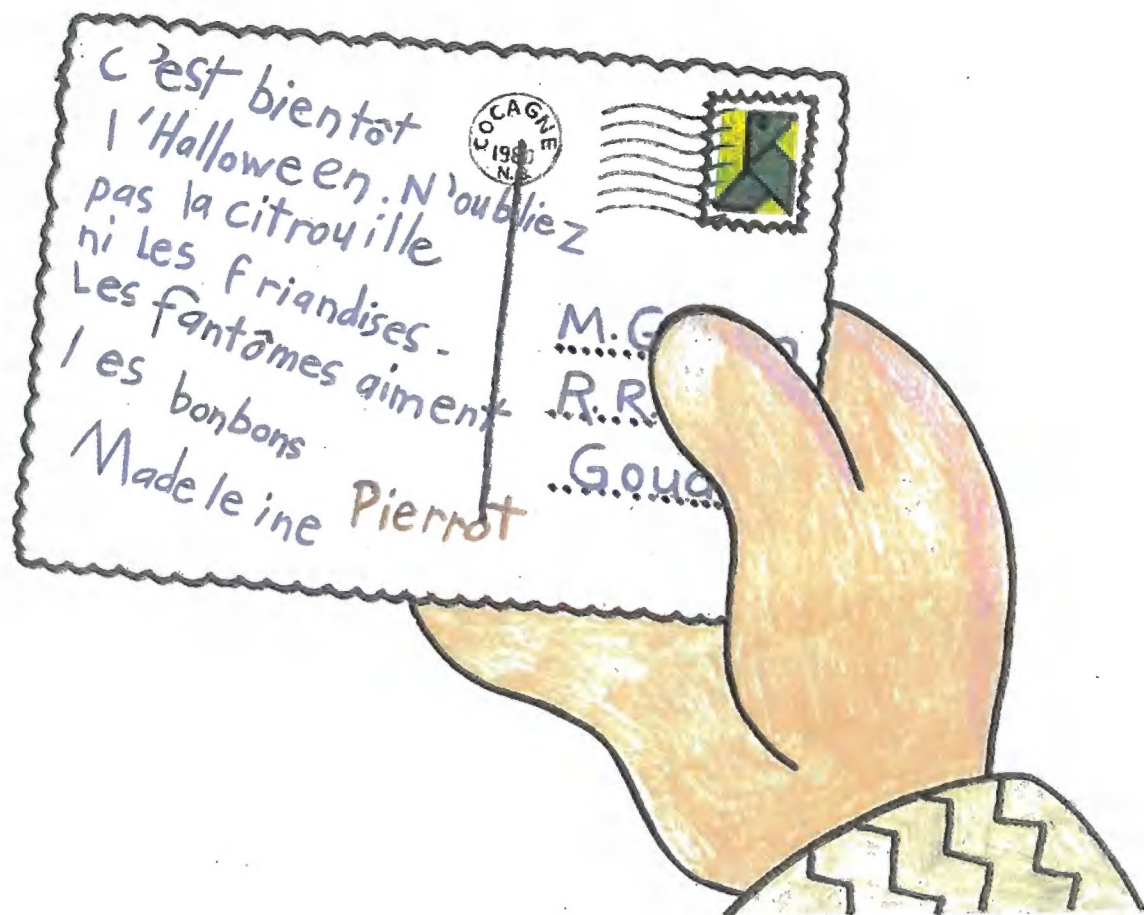 C'est bientôt
l'Halloween. N'oubliez
pas la citrouille
ni Les friandises.
Les fantômes aiment
les bonbons
Madeleine Pierrot
COCAGNE
M.
R.R.